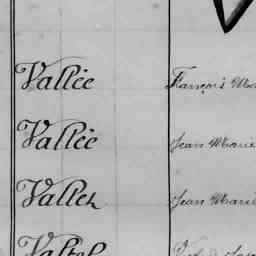 Vallée François Mar
Vallée Jean Marie
Vallet Jean Marie
Valtel